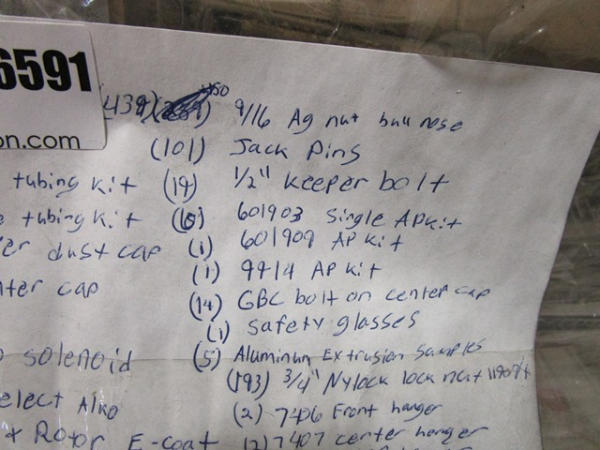 6591
on.com
(439) 450 9/16 Ag nut bull nose
(101) Jack Pins
tubing kit (19) 1/2" keeper bolt
tubing kit (6) 601903 Single AP kit
er dust cap (1) 601909 AP kit
nter cap (1) 9914 AP kit
(14) GBC bolt on center cap
(1) safety glasses
solenoid (5) Aluminum Extrusion Samples
(193) 3/4" Nylock lock nut
elect Also (2) 7406 Front hanger
Rotor E-coat (2) 7407 center hanger